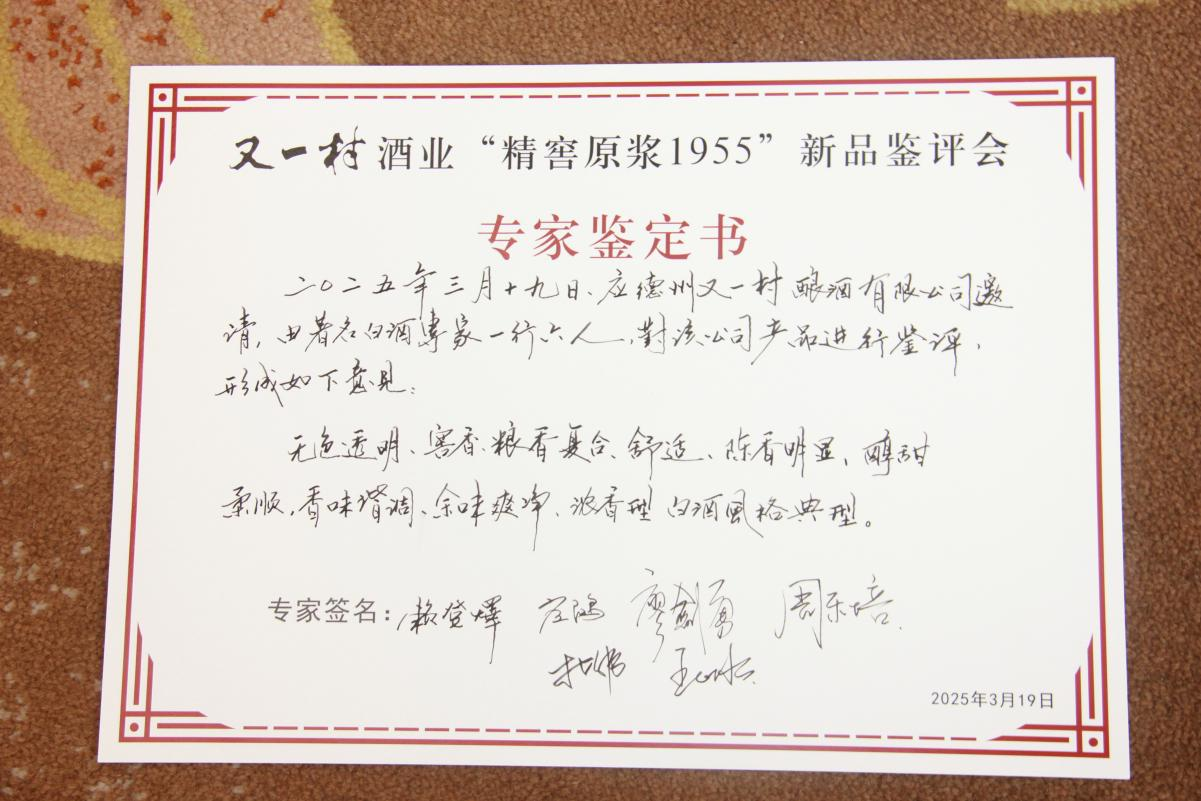 又一村酒业“精窖原浆1955”新品鉴评会
专家鉴定书
二〇二五年三月十九日、应德州又一村酿酒有限公司邀
请，由著名白酒專家一行六人，對该公司产品进行鉴评，
形成如下意见：
无色透明、窖香、粮香复合、舒适、陈香明显、醇甜
柔顺，香味谐调、余味爽净、浓香型白酒风格典型。
专家签名：赖登燡 左鸿 廖剑勇 周乐培
2025年3月19日